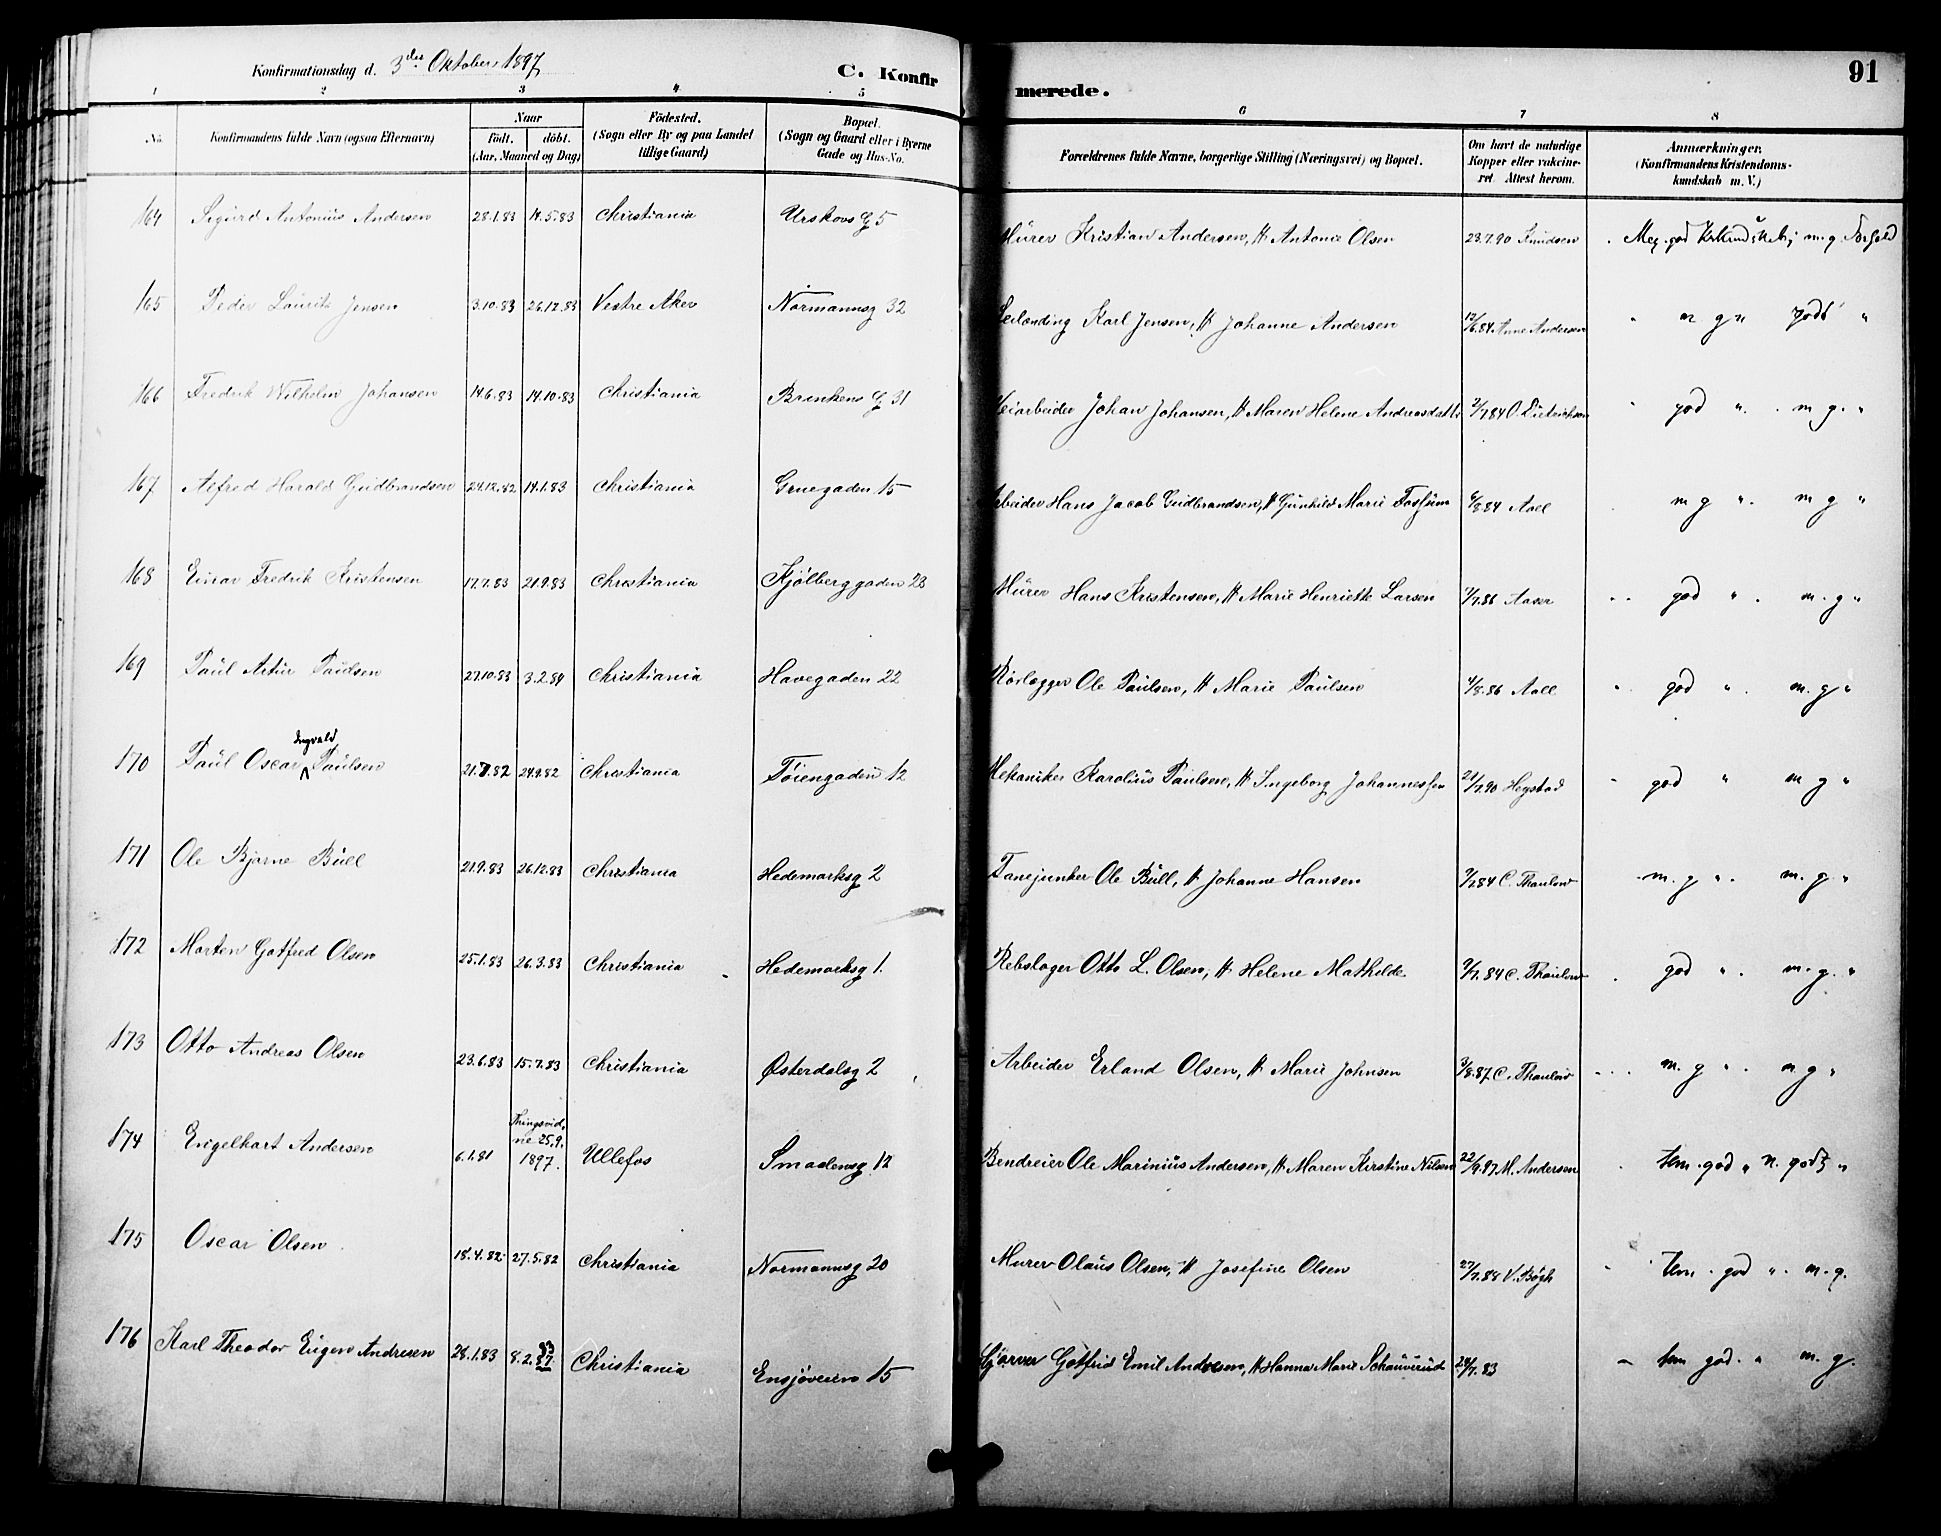 Konfirmationsdag d. 3die Oktober 1897
C. Konfirmerede.
91
1 2 3 4 5 6 7 8
No. Konfirmandens fulde Navn (ogsaa Efternavn) Naar födt. döbt. (Aar, Maaned og Dag) Födested. (Sogn eller By og paa Landet tillige Gaard) Bopæl. (Sogn og Gaard eller i Byerne Gade og Hus-No. Forældrenes fulde Navne, borgerlige Stilling (Næringsvei) og Bopæl. Om havt de naturlige Kopper eller vakcineret. Attest herom. Anmærkninger. (Konfirmandens Kristendomskundskab m. V.)
164 Sigurd Antonius Andersen 28.1.83 14.5.83 Christiania Urskovs G 5 Murer Kristian Andersen, H Antonie Olsen 23.7.90 Knudsen Meg. god Kr. Kundskab; m. g. Forhold
165 Peder Lauritz Jensen 3.10.83 26.12.83 Vestre Aker Normannsg 32 Karl Jensen, H Johanne Andersen 12/6.84 Anne Andersen " m g " godt "
166 Fredrik Wilhelm Johansen 14.6.83 14.10.83 Christiania Brinkens G 31 Veiarbeider Johan Johansen, H Maren Helene Andreasdatter 2/7.84 O. Dietrichson " god " . m g. "
167 Alfred Harald Gudbrandsen 24.12.82 14.1.83 Christiania Gruegaden 15 Arbeider Hans Jacob Gudbrandsen, H Gunhild Marie Fossum 6/8.84 Aall m g " . m g "
168 Einar Fredrik Kristensen 17.7.83 21.9.83 Christiania Kjölberggaden 23 Murer Hans Kristensen, H Marie Henriette Larsen 7/7.86 Aaser " god " . m. g "
169 Paul Artur Paulsen 27.10.83 3.2.84 Christiania Havegaden 22 Rørlægger Ole Paulsen, H Marie Paulsen 4/8.86 Aall " god " . m. g "
170 Paul Oscar Ingvald Paulsen 21.7.82 24.9.82 Christiania Tøiengaden 12 Mekaniker Karolius Paulsen, H Ingeborg Johannessen 21/7.90 Hegstad " god " m g "
171 Ole Bjarne Bull 21.9.83 26.12.83 Christiania Hedemarksg 2 Fanejunker Ole Bull, H Johanne Hansen 9/7.84 C. Thaulow m. g " . m. g. "
172 Morten Gotfred Olsen 25.1.83 26.3.83 Christiania Hedemarksg 1. Rebslager Otto L. Olsen, H Helene Mathilde 9/7.84 C. Thaulow god " . m. g. "
173 Otto Andreas Olsen 23.6.83 15.7.83 Christiania Østerdalsg 2 Arbeider Erland Olsen, H Marie Johnsen 3/8.87 C. Thaulow m. g " . m g "
174 Engelhart Andersen 6.1.81 Thingsvidne 25.9. 1897. Ullefos Smaalensg 12 Bendreier Ole Marinius Andersen, H Maren Kirstine Nilsen 22/9.87 M. Andersen tem. god " n. godt "
175 Oscar Olsen 18.4.82 27.5.82 Christiania Normannsg 20 Murer Olaus Olsen, H Josefine Olsen 27/7.88 V. Bøgh " tem. god " . m. g.
176 Karl Theodor Eugen Andresen 28.1.83 8.2.87. 83 Christiania Ensjøveien 15 Gjørtler Gotfrid Emil Andresen, H Hanna Marie Schauverud 24/7.83 " tem god. " m. g.